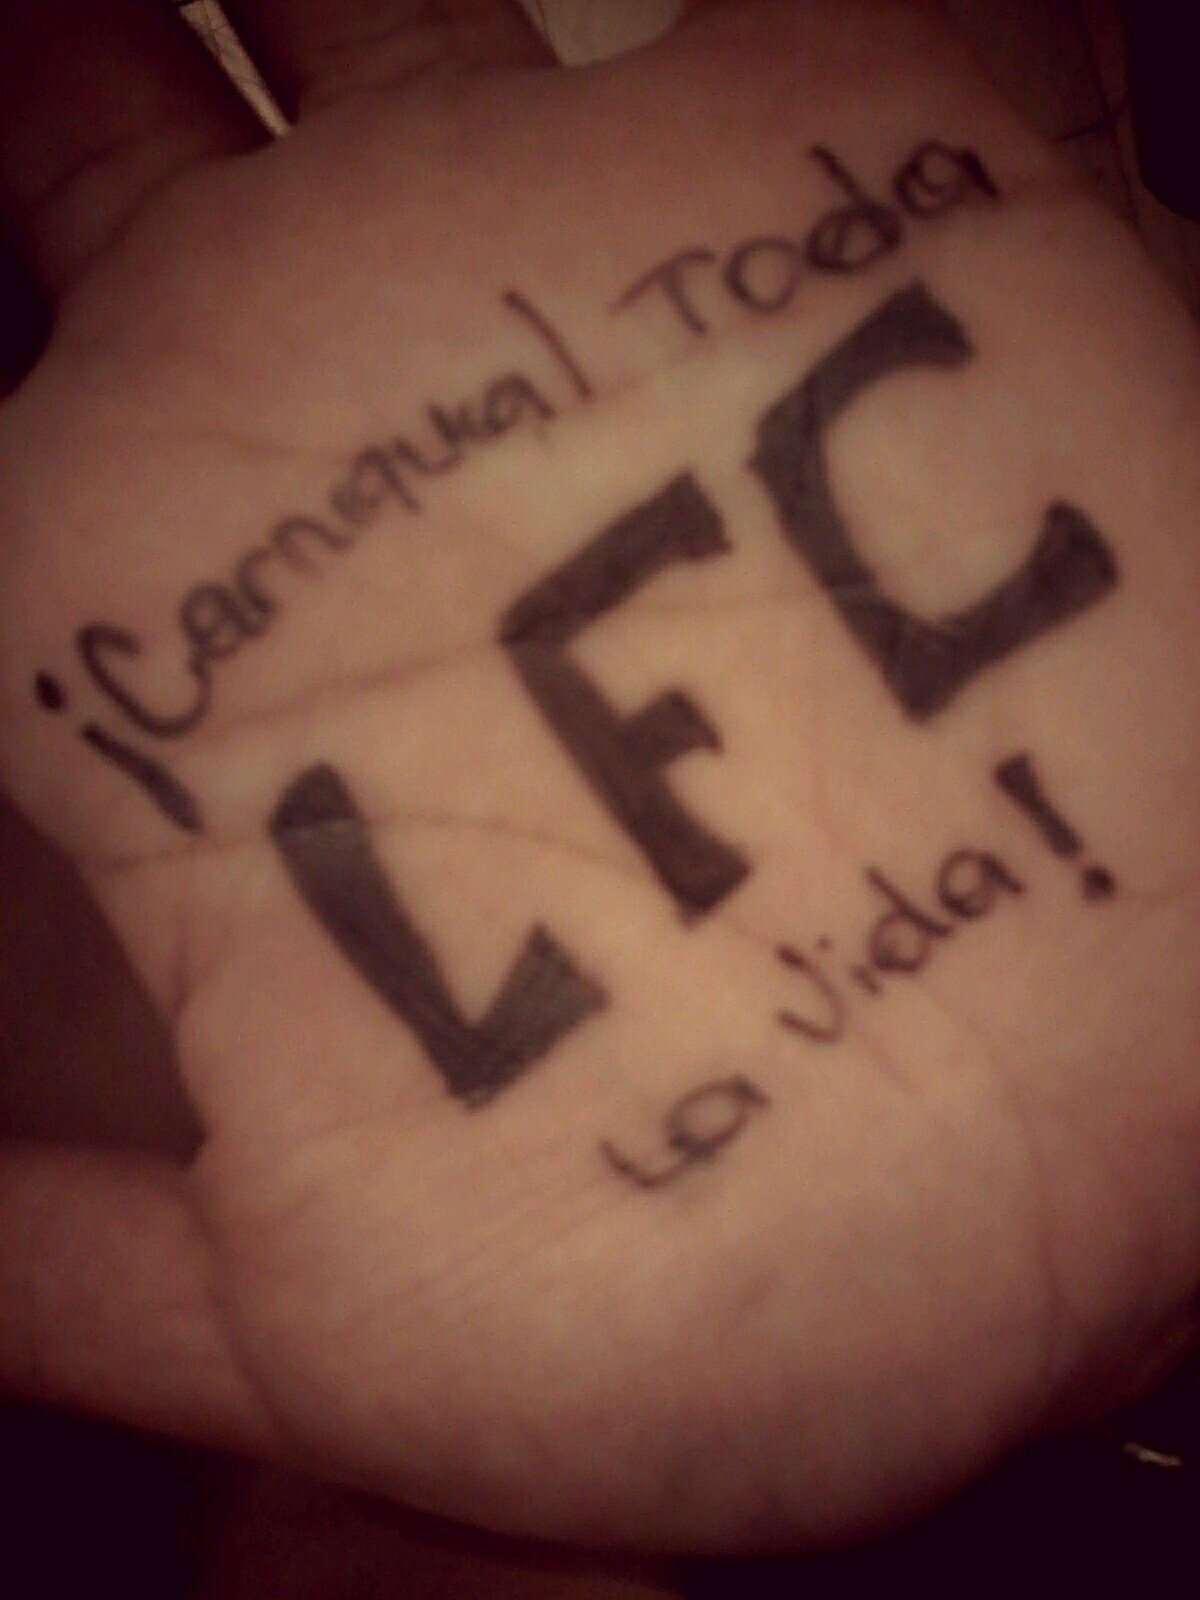 ¡Carnaval Toda
LFC
La Vida!